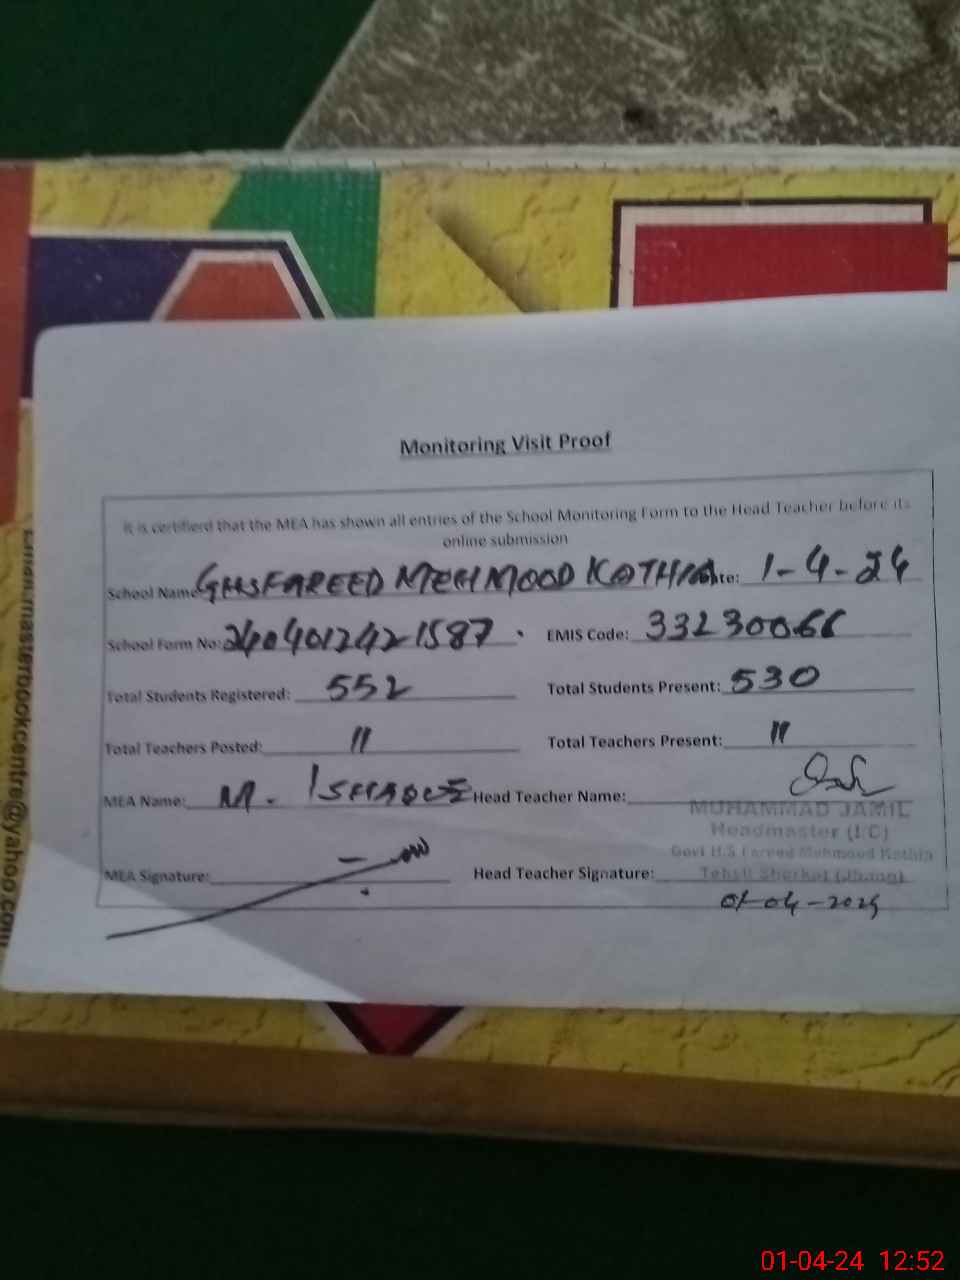 Monitoring Visit Proof
It is certifierd that the MEA has shown all entries of the School Monitoring Form to the Head Teacher before its
online submission
School Name: GHS FAREED MEHMOOD KATHIA Date: 1-4-24
School Form No: 240401242 1587 . EMIS Code: 33230066
Total Students Registered: 552 Total Students Present: 530
Total Teachers Posted: 11 Total Teachers Present: 11
MEA Name: M. ISHAQUE Head Teacher Name:
MUHAMMAD JAMIL
Headmaster (I/C)
Govt H.S Fareed Mehmood Kathia
MEA Signature: Head Teacher Signature: Tehsil Shorkot (Jhang)
01-04-2024
Email:masterbookcentre@yahoo.com
01-04-24 12:52